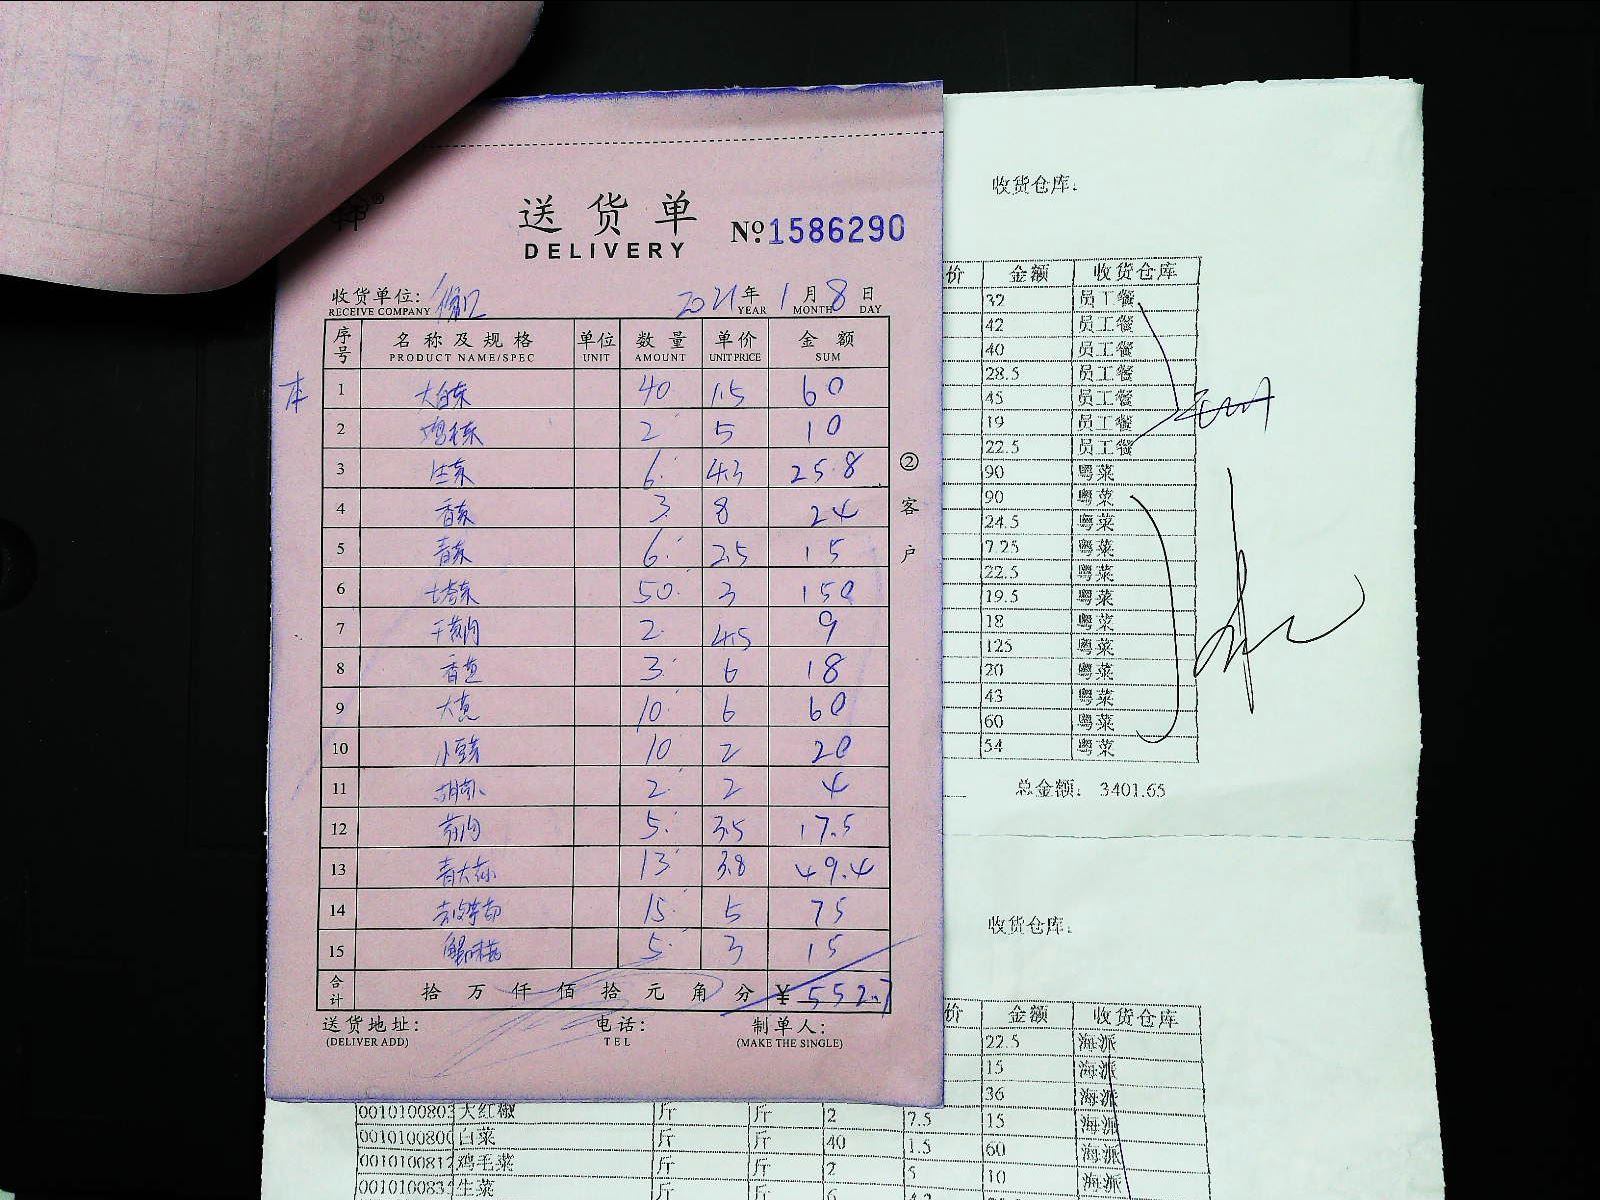 送货单
DELIVERY
№ 1586290
收货单位:
RECEIVE COMPANY
2021年1月8日
YEAR MONTH DAY
序号 名称及规格 单位 数量 单价 金额
PRODUCT NAME/SPEC UNIT AMOUNT UNIT PRICE SUM
本
1 大白菜 40 1.5 60
2 鸡毛菜 2 5 10
3 生菜 6 4.3 25.8
4 香菜 3 8 24
5 青菜 6 2.5 15
6 50 3 150
7 2 4.5 9
8 香葱 3 6 18
9 大葱 10 6 60
10 小豆芽 10 2 20
11 2 2 4
12 5 3.5 17.5
13 13 3.8 49.4
14 15 5 75
15 蟹味菇 5 3 15
合计 拾 万 仟 佰 拾 元 角 分 ¥ 552.7
②客户
送货地址: 电话: 制单人:
(DELIVER ADD) TEL (MAKE THE SINGLE)
收货仓库:
价 金额 收货仓库
32 员工餐
42 员工餐
40 员工餐
28.5 员工餐
45 员工餐
19 员工餐
22.5 员工餐
90 粤菜
90 粤菜
24.5 粤菜
7.25 粤菜
22.5 粤菜
19.5 粤菜
18 粤菜
125 粤菜
20 粤菜
43 粤菜
60 粤菜
54 粤菜
总金额: 3401.65
收货仓库:
价 金额 收货仓库
22.5 海派
15 海派
36 海派
0010100803 大红椒 斤 斤 2 7.5 15 海派
001010080 白菜 斤 斤 40 1.5 60 海派
0010100812 鸡毛菜 斤 斤 2 5 10 海派
001010083 生菜 斤 斤 6 4.3